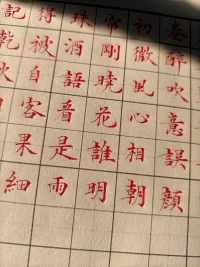 記得珠帘初卷
乾被酒剛微醉
自語曉風吹
客音花心意
果是誰相誤
細雨明朝顏